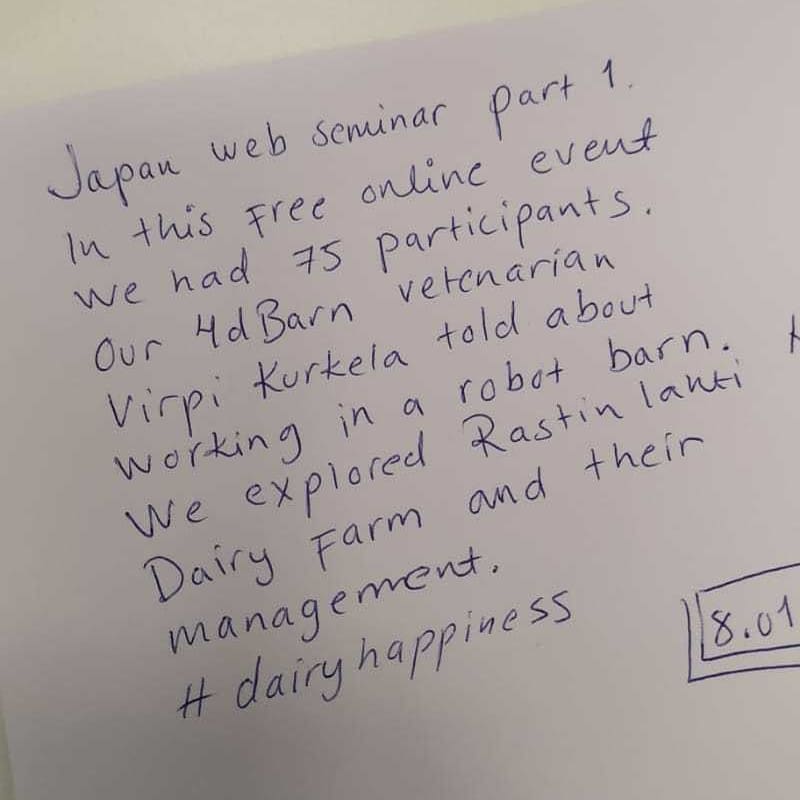 Japan web seminar part 1.
In this Free online event
we had 75 participants.
Our 4dBarn vetenarian
Virpi Kurkela told about
working in a robot barn.
We explored Rastin lahti
Dairy Farm and their
management.
# dairyhappiness
8.01